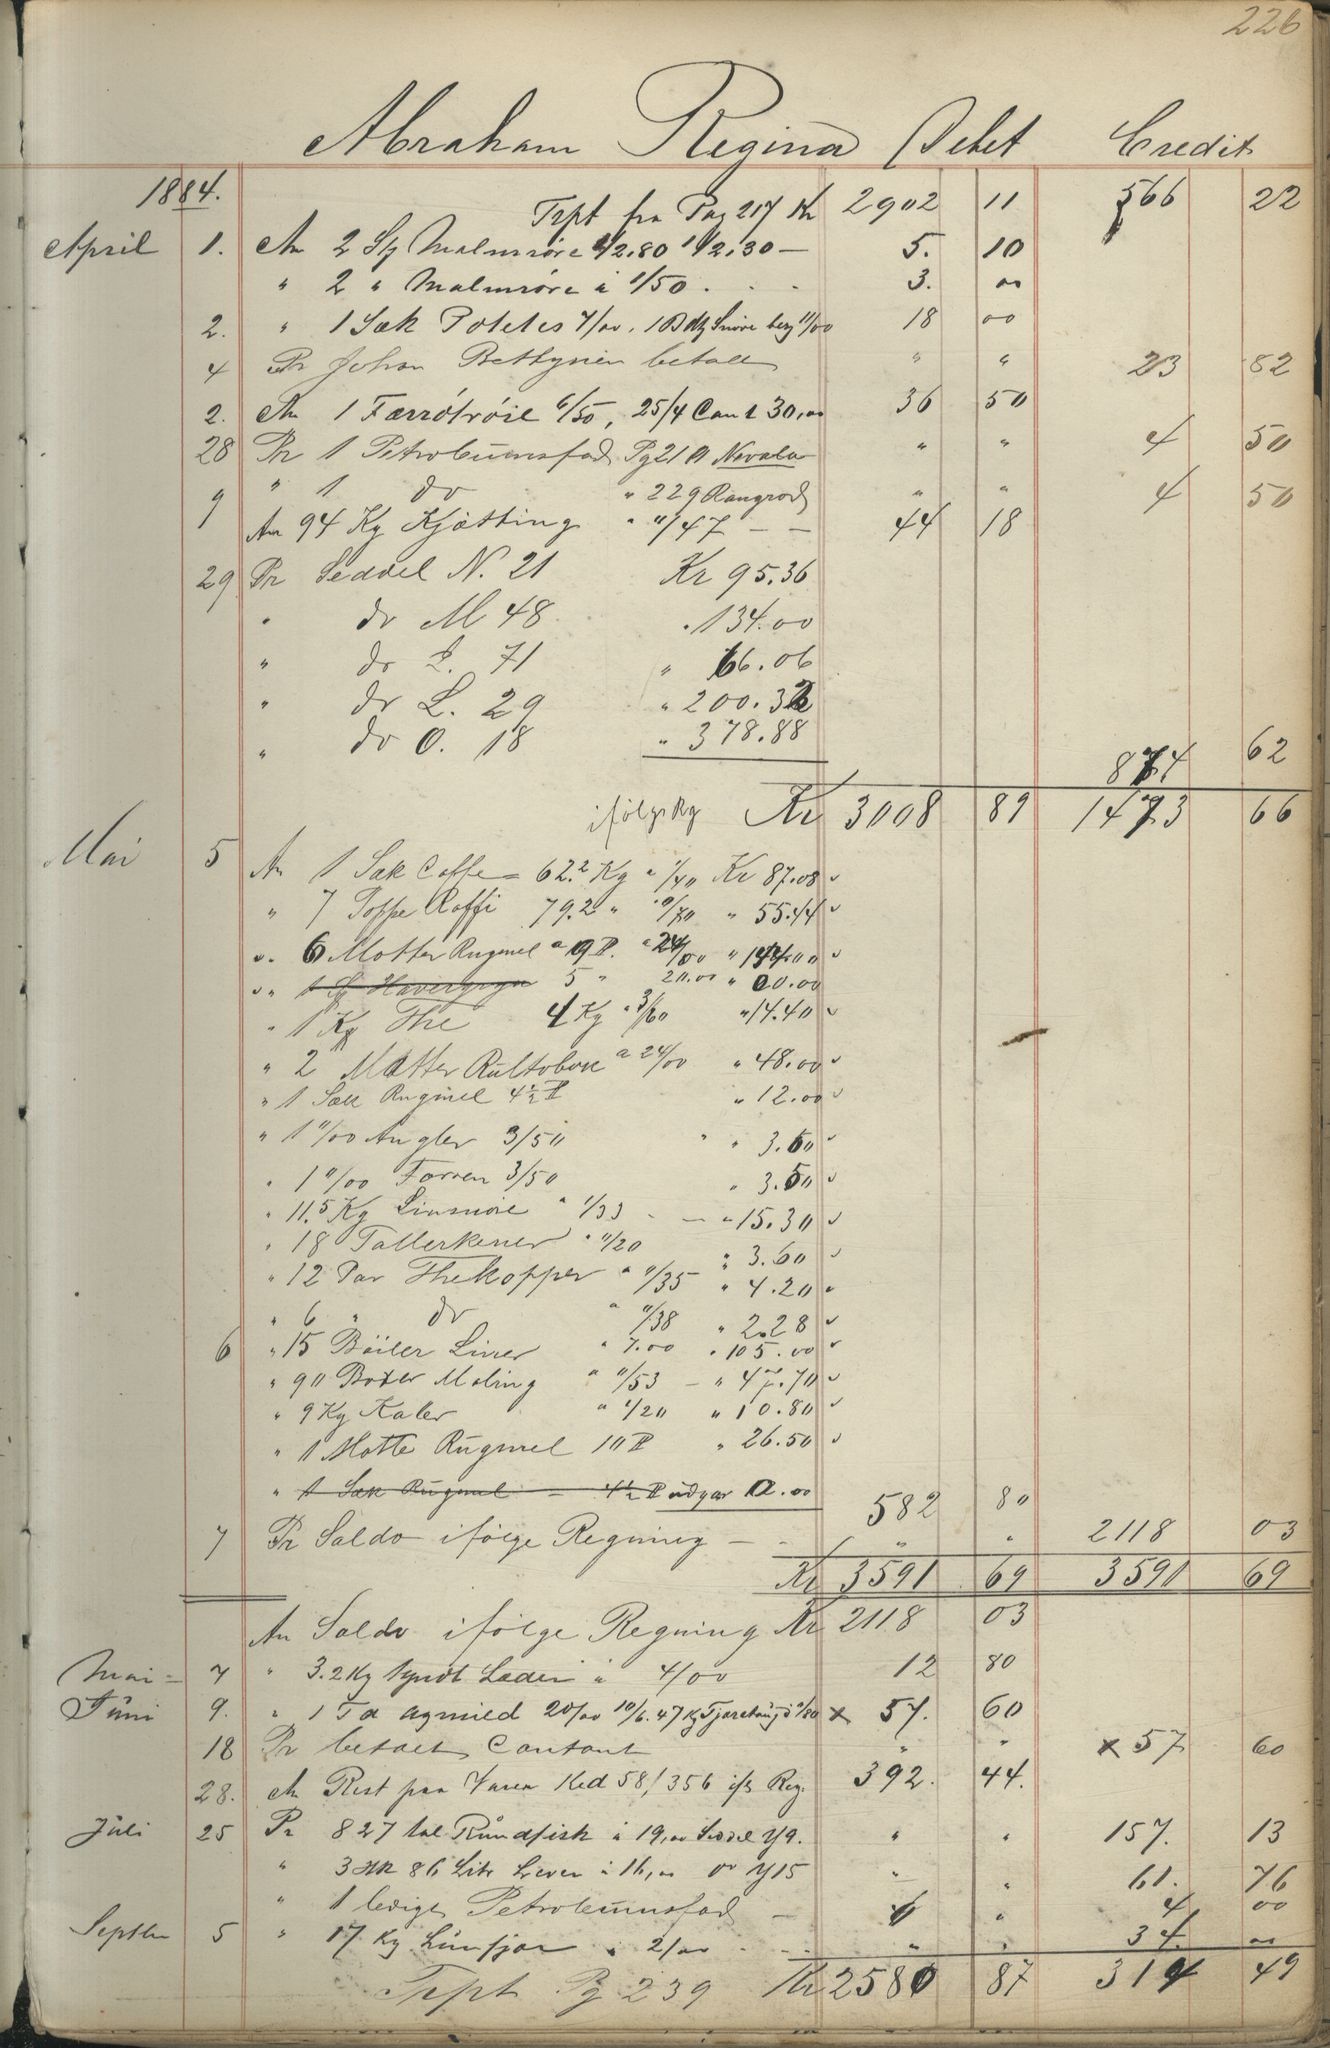 226
Abraham Regina Debet Credit
1884.
Trpt fra Pag 217 Kr 2902 11 566 22
April 1. An 2 Stk Malmsøre 1/2.80 1/2.30 — 5. 10
" 2 " Malmsøre à 1/50 . . . 3. 00
2. " 1 Sæk Potetes 7/00, 1 Bdt Snøre 11/00 18 00
4 Pr Johan betalt " " 23 82
2. An 1 Færrötröie 6/50, 25/4 Cont 30,00 36 50
28 Pr 1 Petroleumsfad Pg 210 Nevala " " 4 50
" 1 do " 229 Rangrod " " 4 50
9 An 94 Kg Kjøtting " "/47 — — 44 18
29 Pr Seddel N. 21 Kr 95.36
" do M 48 " 134.00
" do L. 71 " 66.06
" do L. 29 " 200.32
" do O. 18 " 378.88
874 62
ifølge Rg Kr 3008 89 1473 66
Mai 5 An 1 Sæk Caffe 62.2 Kg " 1/40 Kr 87.08
" 7 Toppe Raffi 79.2 " "/70 " 55.44
" 6 Motter Rugmel a 9 " 24/00 " 144.00
" 1 Havregryn 5 " 20.00 " 00.00
" 1 Kg The 4 Kg " 3/60 " 14.40
" 2 Motter a 24/00 " 48.00
" 1 Sæk Rugmel 4½ " 12.00
" 1 "/00 Angler 3/50 " " 3.50
" 1 "/00 Forsen 3/50 " 3.50
" 11.5 Kg Linsnöre " 1/33 — " 15.30
" 18 Tallerkener " "/20 " 3.60
" 12 Par Thekopper " "/35 " 4.20
" 6 " do " "/38 " 2.28
6 " 15 Böiler Liner " 7.00 " 105.00
" 90 Boxer Maling " "/53 — " 47.70
" 9 Kg Kabler " 1/20 " 10.80
" 1 Motte Rugmel 10 " 26.50
" 1 Sæk Rugmel — 4½ udgår 0.00
582 80
7 Pr Saldo ifølge Regning — " " 2118 03
Kr 3591 69 3591 69
An Saldo ifølge Regning Kr 2118 03
Mai 7 " 3.2 Kg tyndt Læder à 4/00 12 80
Juni 9. " 1 Td agnsild 20/00 10/6. 47 Kg Tjæretaug à "/80 x 57. 60
18 Pr betalt Contant " " x 57 60
28. An Rest paa Varer 58/356 ifl Reg. 392. 44.
Juli 25 Pr 827 tal Rundfisk à 19,00 Seddel Y9. " " 157. 13
" 3 Hk 86 Litr Lever à 16,00 do Y15 " " 61. 76
" 1 ledigt Petroleumsfad — " " 4 00
Septbr 5 " 17 Kg à 2/00 . . . " " 34. 00
Trpt Pg 239 Kr 2580 87 314 49